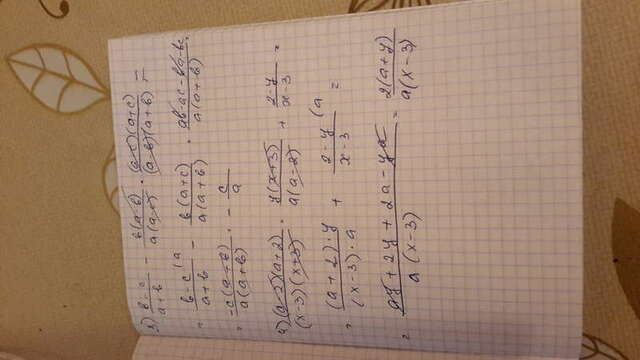 3) \frac{b-c}{a+b} - \frac{b(a-b)}{a(a-c)} \cdot \frac{(a-c)(a+c)}{(a-b)(a+b)} =
= \frac{b-c}{a+b} - \frac{b(a+c)}{a(a+b)} = \frac{ab-ac-ba-bc}{a(a+b)}
= \frac{-c(a+b)}{a(a+b)} = -\frac{c}{a}
4) \frac{(a-2)(a+2)}{(x-3)(x+3)} \cdot \frac{y(x+3)}{a(a-2)} + \frac{2-y}{x-3} =
= \frac{(a+2) \cdot y}{(x-3) \cdot a} + \frac{2-y}{x-3} (a =
= \frac{ay+2y+2a-ya}{a(x-3)} = \frac{2(a+y)}{a(x-3)}